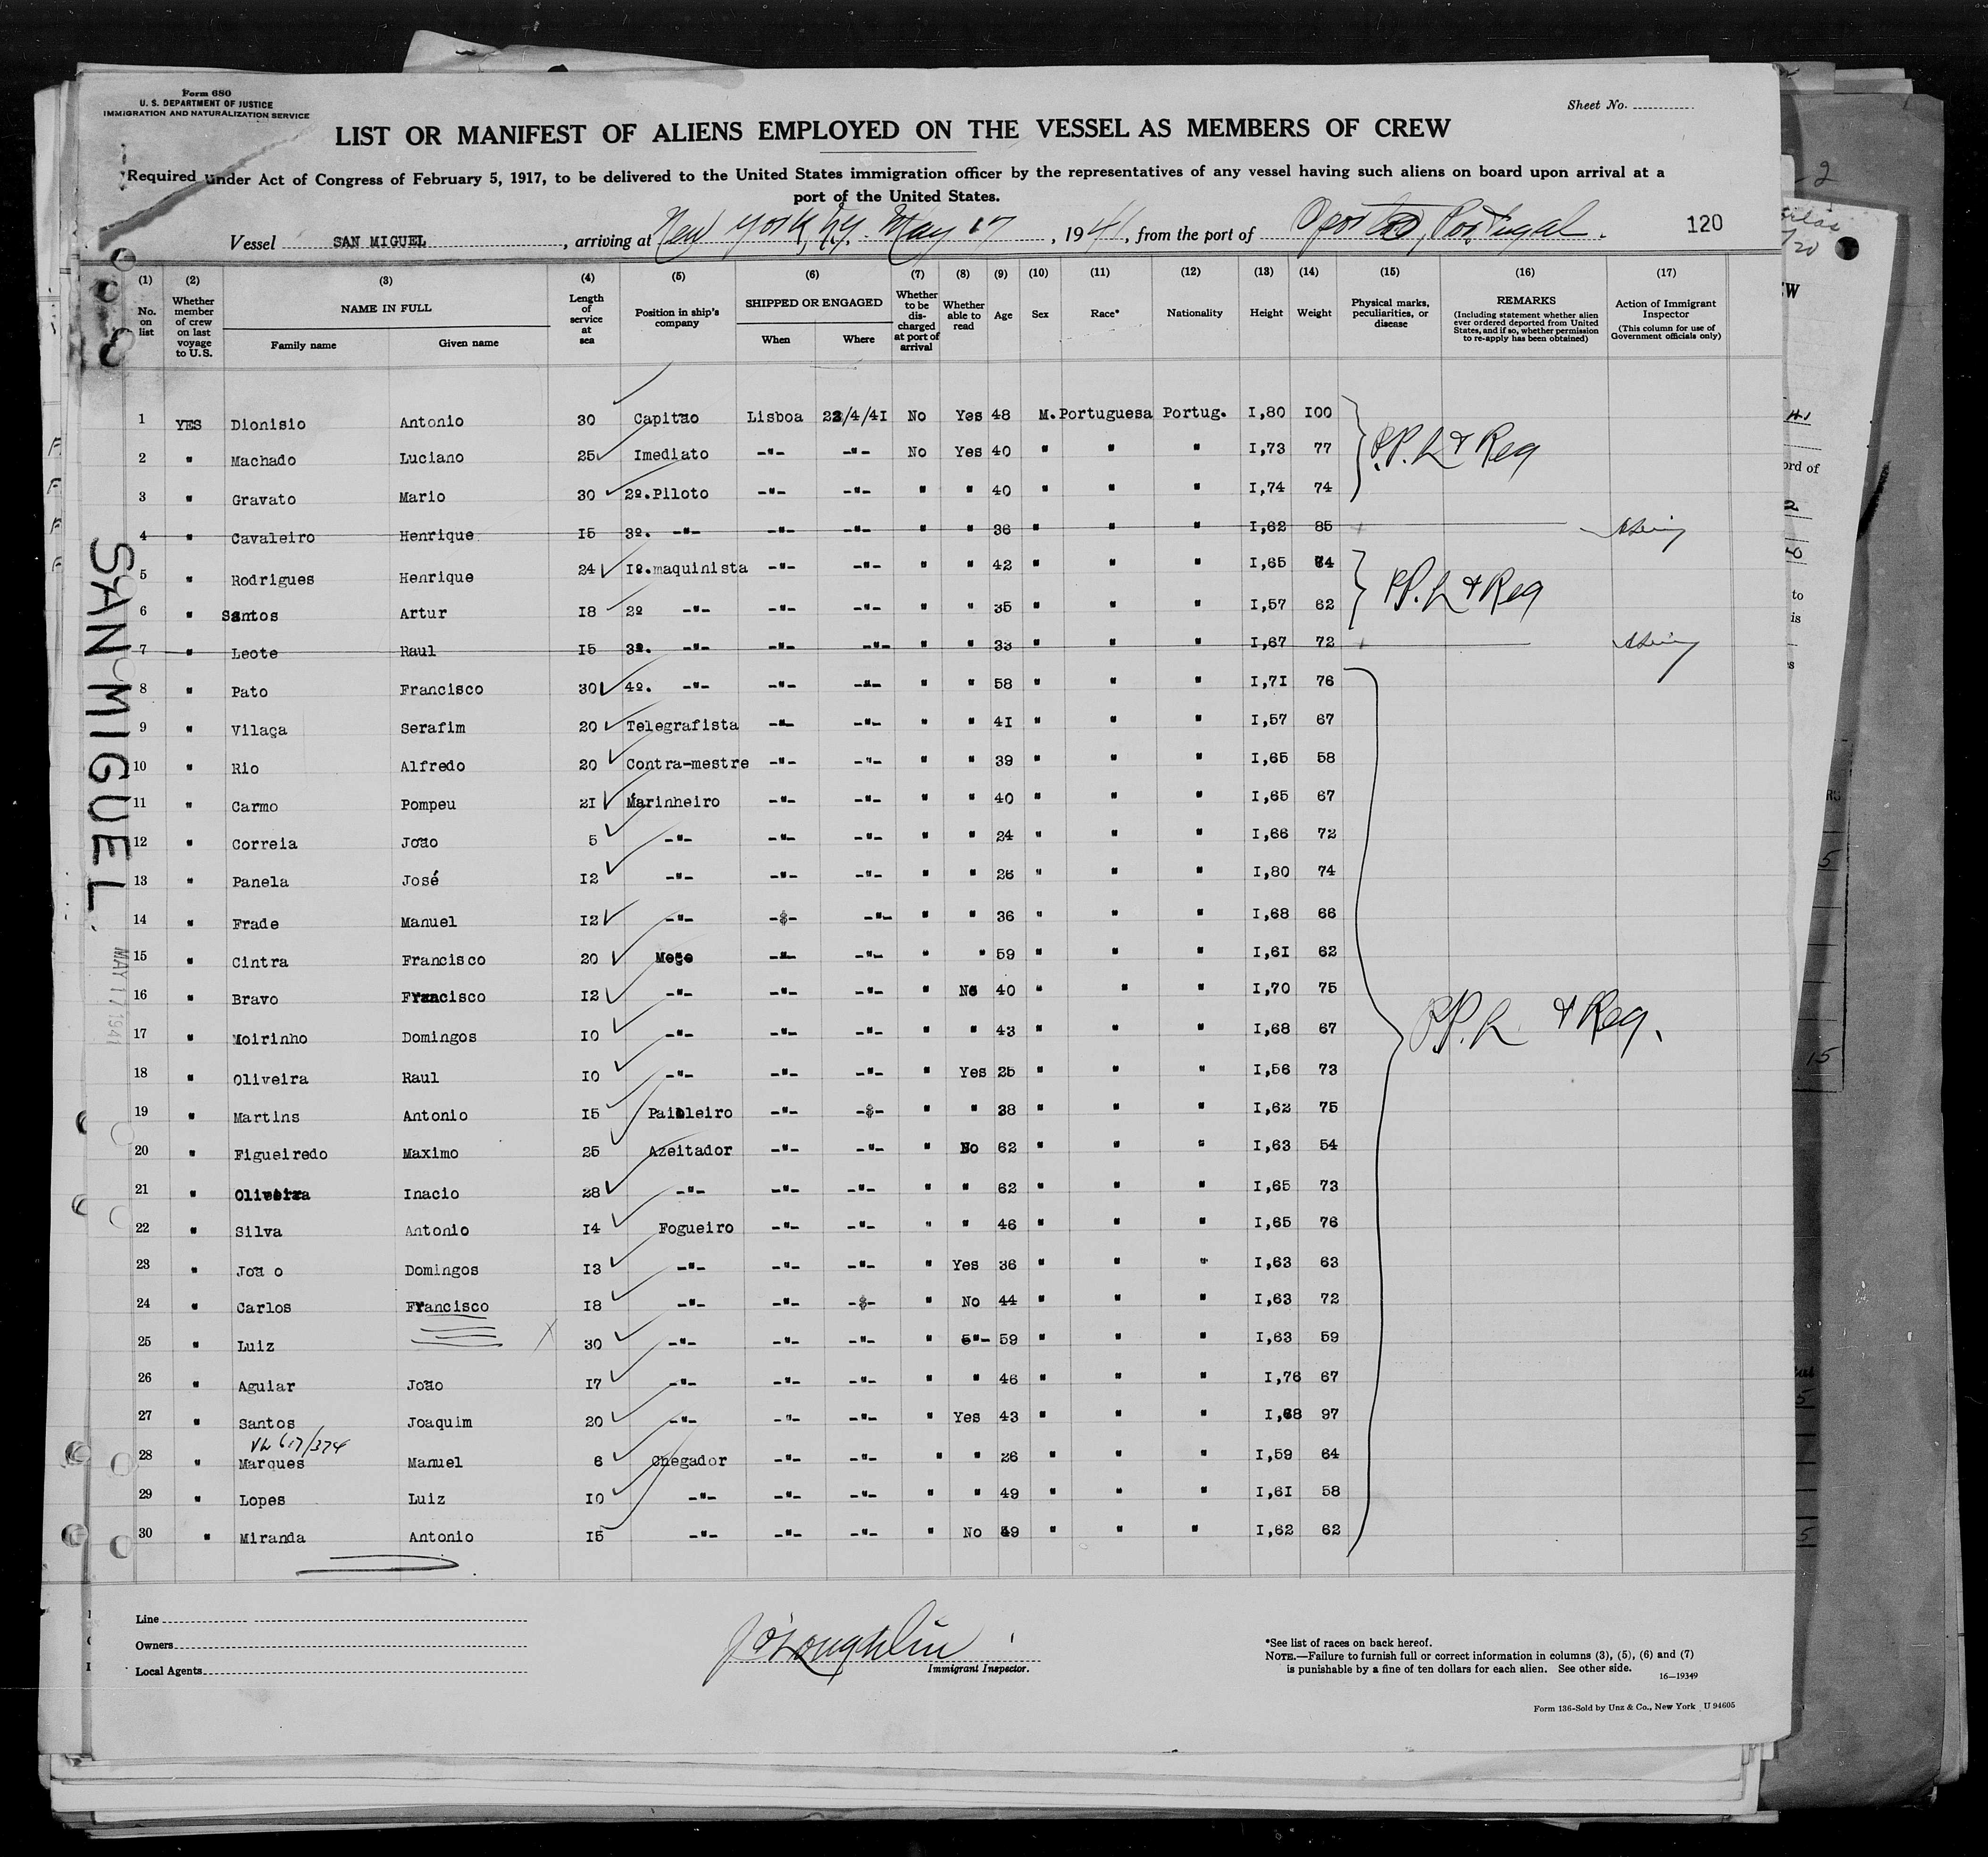 Form 680
U. S. DEPARTMENT OF JUSTICE
IMMIGRATION AND NATURALIZATION SERVICE
Sheet No.
LIST OR MANIFEST OF ALIENS EMPLOYED ON THE VESSEL AS MEMBERS OF CREW
Required under Act of Congress of February 5, 1917, to be delivered to the United States immigration officer by the representatives of any vessel having such aliens on board upon arrival at a
port of the United States.
Vessel SAN MIGUEL, arriving at New York, N.Y. May 17, 1941, from the port of Oporto, Portugal. 120
(1) No. on list (2) Whether member of crew on last voyage to U.S. (3) NAME IN FULL Family name Given name (4) Length of service at sea (5) Position in ship's company (6) SHIPPED OR ENGAGED When Where (7) Whether to be discharged at port of arrival (8) Whether able to read (9) Age (10) Sex (11) Race* (12) Nationality (13) Height (14) Weight (15) Physical marks, peculiarities, or disease (16) REMARKS (Including statement whether alien ever ordered deported from United States, and if so, whether permission to re-apply has been obtained) (17) Action of Immigrant Inspector (This column for use of Government officials only)
1 YES Dionisio Antonio 30 Capitão Lisboa 23/4/41 No Yes 48 M. Portuguesa Portug. I,80 I00
2 " Machado Luciano 25 Imediato -"- -"- No Yes 40 " " " I,73 77 P.P. L & Reg
3 " Gravato Mario 30 2º.Piloto -"- -"- " " 40 " " " I,74 74
4 " Cavaleiro Henrique I5 3º. -"- -"- -"- " " 36 " " " I,62 85
5 " Rodrigues Henrique 24 Iº.maquinista -"- -"- " " 42 " " " I,65 84
6 " Santos Artur I8 2º -"- -"- -"- " " 35 " " " I,57 62 PP. L & Reg
7 " Leote Raul I5 3º. -"- -"- -"- " " 33 " " " I,67 72
8 " Pato Francisco 30 4º. -"- -"- -"- " " 58 " " " I,7I 76
9 " Vilaça Serafim 20 Telegrafista -"- -"- " " 4I " " " I,57 67
10 " Rio Alfredo 20 Contra-mestre -"- -"- " " 39 " " " I,65 58
11 " Carmo Pompeu 2I Marinheiro -"- -"- " " 40 " " " I,65 67
12 " Correia João 5 -"- -"- -"- " " 24 " " " I,66 72
13 " Panela José I2 -"- -"- -"- " " 26 " " " I,80 74
14 " Frade Manuel I2 -"- -"- -"- " " 36 " " " I,68 66
15 " Cintra Francisco 20 Moço -"- -"- " " 59 " " " I,6I 62
16 " Bravo Francisco I2 -"- -"- -"- " No 40 " " " I,70 75 PP. L & Reg.
17 " Moirinho Domingos I0 -"- -"- -"- " " 43 " " " I,68 67
18 " Oliveira Raul I0 -"- -"- -"- " Yes 25 " " " I,56 73
19 " Martins Antonio I5 Paioleiro -"- -"- " " 38 " " " I,62 75
20 " Figueiredo Maximo 25 Azeitador -"- -"- " No 62 " " " I,63 54
21 " Oliveira Inacio 28 -"- -"- -"- " " 62 " " " I,65 73
22 " Silva Antonio I4 Fogueiro -"- -"- " " 46 " " " I,65 76
23 " Joã o Domingos I3 -"- -"- -"- " Yes 36 " " " I,63 63
24 " Carlos Francisco I8 -"- -"- -"- " No 44 " " " I,63 72
25 " Luiz 30 -"- -"- -"- " -"- 59 " " " I,63 59
26 " Aguiar João I7 -"- -"- -"- " " 46 " " " I,76 67
27 " Santos Joaquim 20 -"- -"- -"- " Yes 43 " " " I,68 97
28 " Marques Manuel 6 Chegador -"- -"- " " 26 " " " I,59 64
29 " Lopes Luiz I0 -"- -"- -"- " " 49 " " " I,6I 58
30 " Miranda Antonio I5 -"- -"- -"- " No 49 " " " I,62 62
SAN MIGUEL
MAY 17 1941
Line
Owners
Local Agents
J O'Loughlin
Immigrant Inspector.
*See list of races on back hereof.
NOTE.—Failure to furnish full or correct information in columns (3), (5), (6) and (7)
is punishable by a fine of ten dollars for each alien. See other side.
16—19349
Form 136-Sold by Unz & Co., New York U 94605